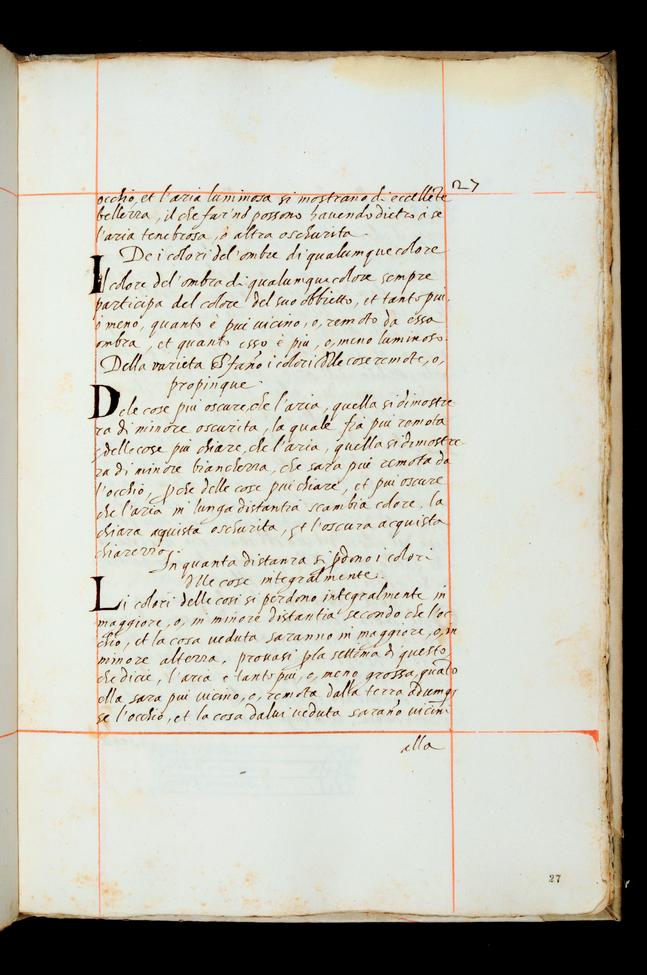 27
occhio, et l'aria luminosa si mostrano di eccellẽte
bellezza, il che far nõ possono havendo dietro à se
l'aria tenebrosa, ò altra oschurita
De i colori del'ombre di qualumque colore
Il colore del'ombra di qualumque colore sempre
participa del colore del suo obbietto, et tanto pui
ò meno, quanto è pui uicino, o, remoto da essa
ombra, et quanto esso è più, o, meno luminoso
Della varieta fanno i colori delle cose remote, o,
propinque
Dele cose piu oscure, che l'aria, quella si dimostre
ra di minore oscurita, la quale fia pui remota
e delle cose piu chiare, che l'aria, quella si dimostre
ra di minore bianchezza, che sara pui remota da
l'occhio, pche delle cose pui chiare, et pui oscure
che l'aria in lunga distantia scambia colore, la
chiara aquista oschurita, et l'oscura acquista
chiarezza
In quanta distanza si pdono i colori
dlle cose integralmente
Li colori delle cosi si perdono integralmente in
maggiore, o, in minore distantia secondo che l'oc
chio, et la cosa ueduta saranno in maggiore, o, in
minore altezza, prouasi pla settima di questo
che dicie, l'aria è tanto pui, o, meno grossa, quãto
ella sara pui uicino, o, remota dalla terra adumq;
se l'occhio, et la cosa dalui ueduta sarano uicini
alla
27